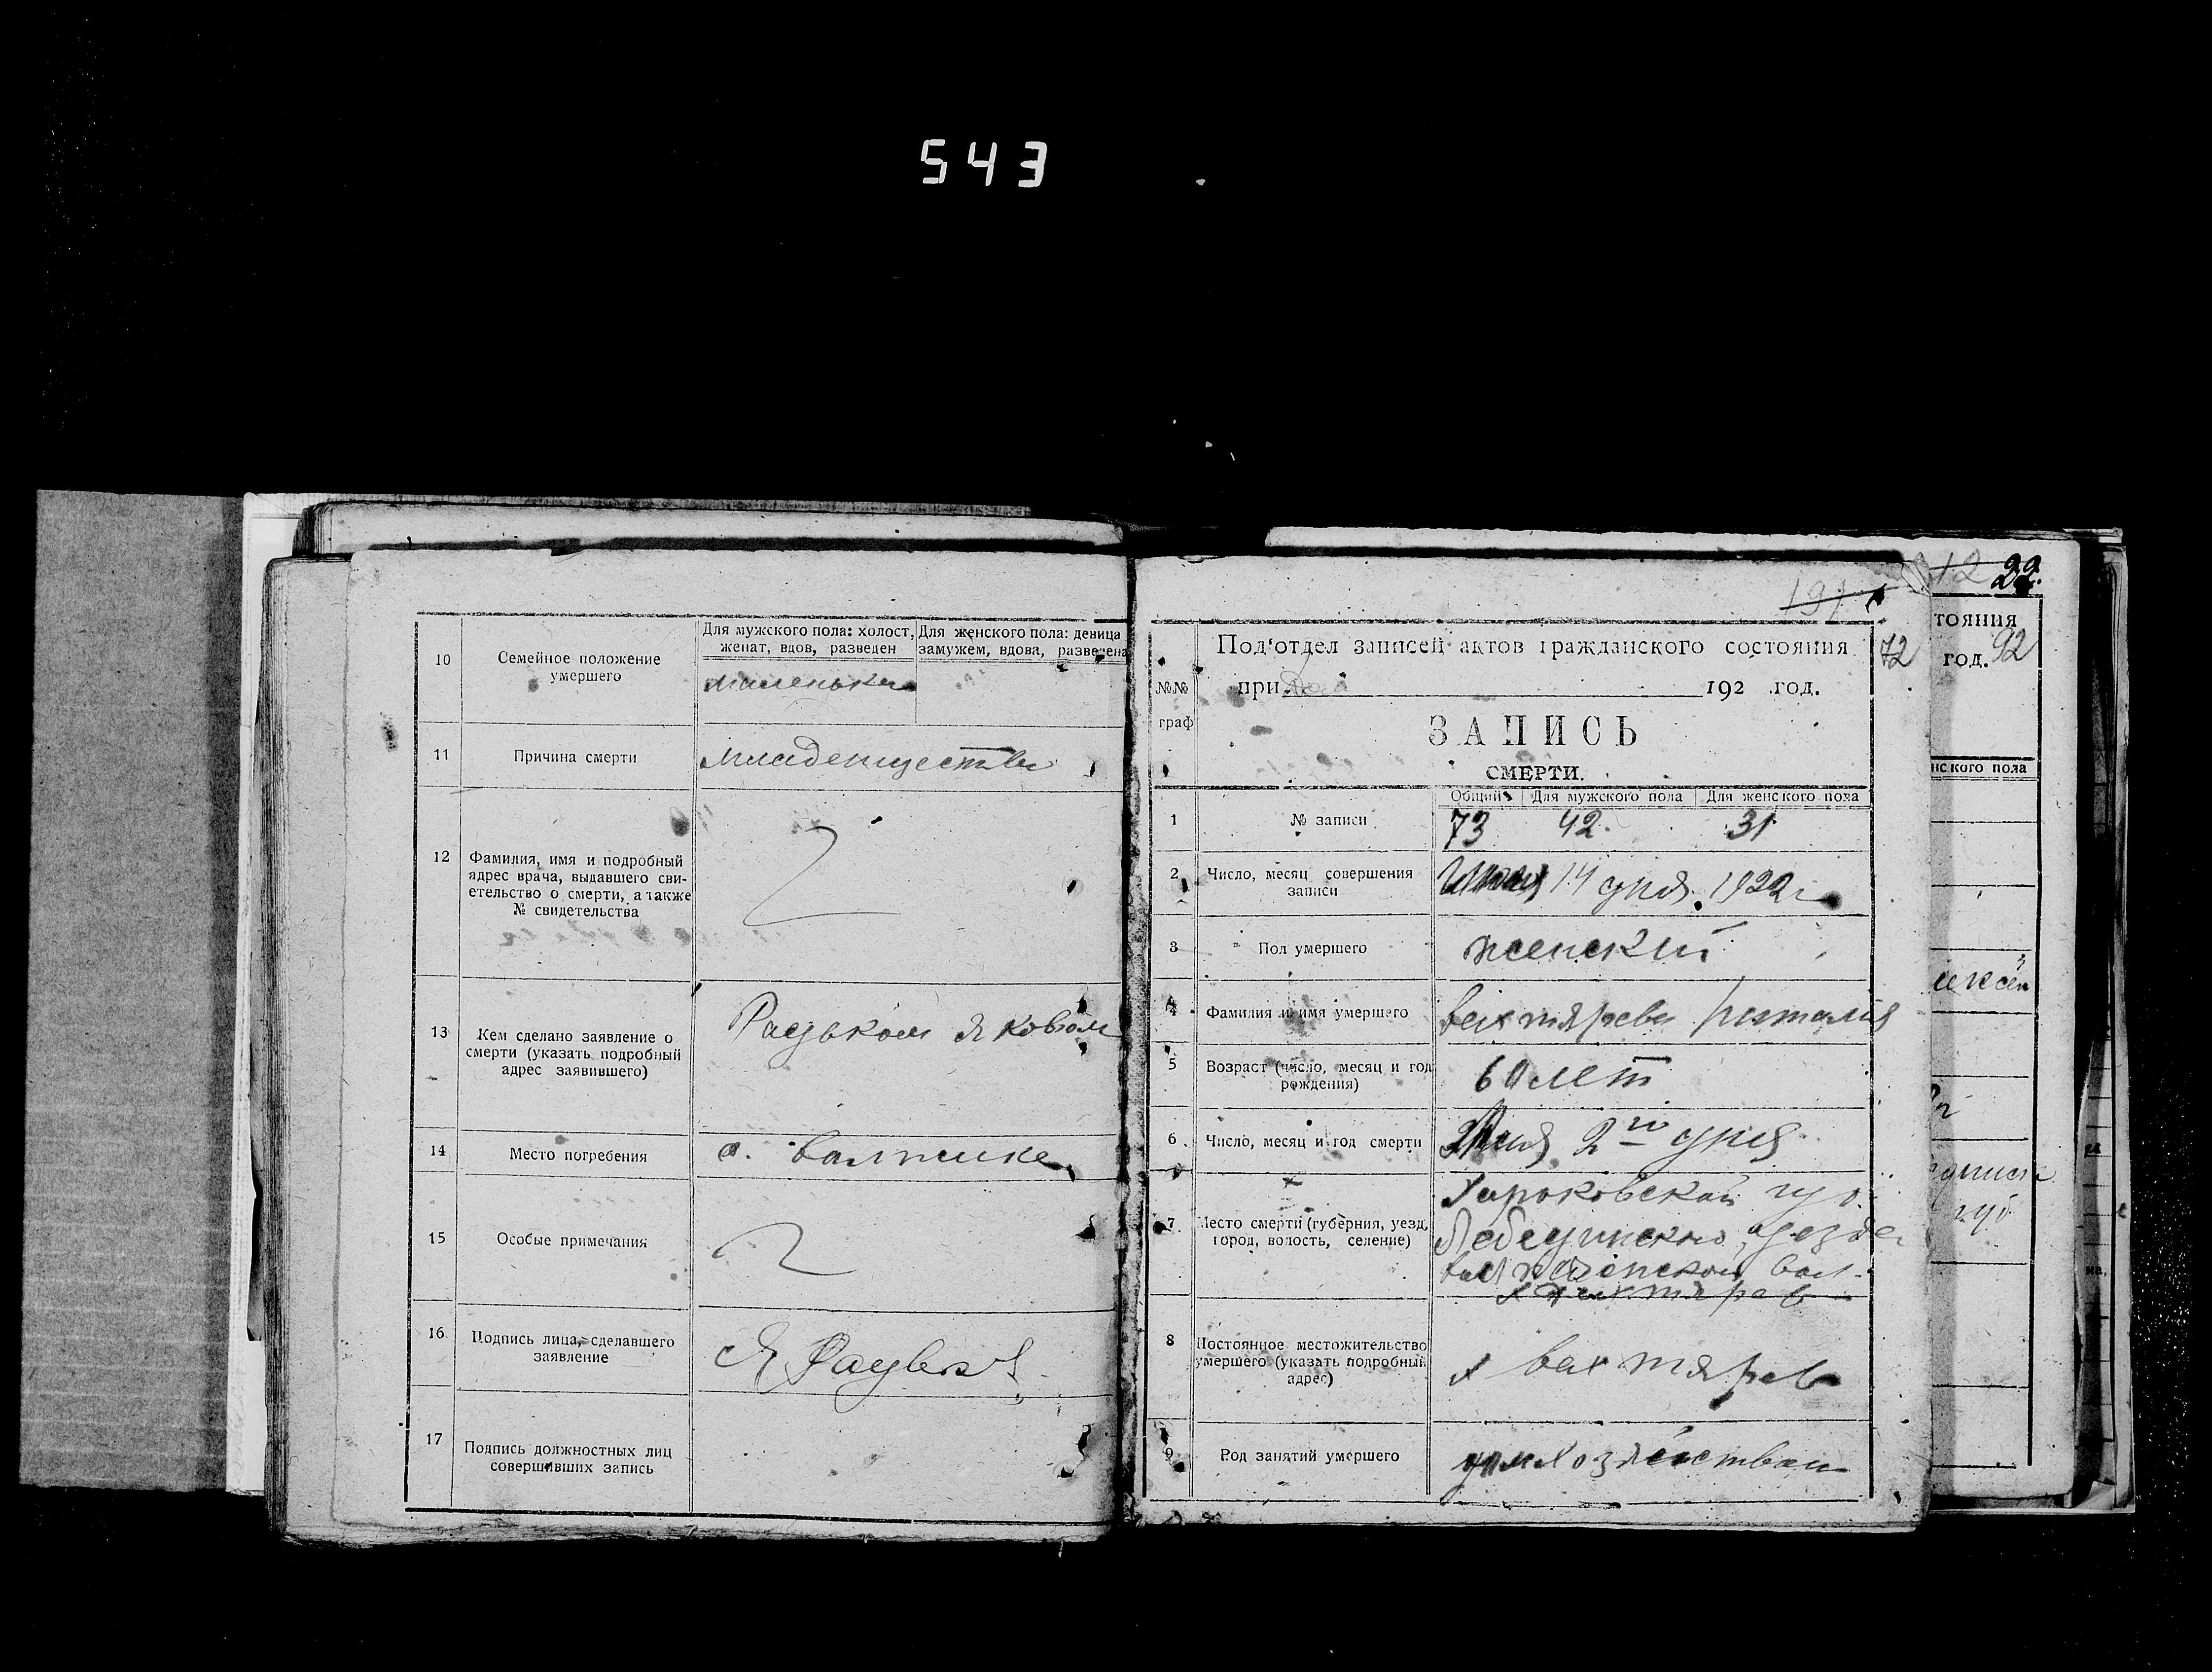 543
10
Семейное положение
умершего
Для мужского пола: холост,
женат, вдов, разведен
Для женского пола: девица
замужем, вдова, разведена
11
Причина смерти
младенчества
12
Фамилия, имя и подробный
адрес врача, выдавшего сви-
етельство о смерти, а также
№ свидетельства
13
Кем сделано заявление о
смерти (указать подробный
адрес заявившего)
Радьком Яковом
14
Место погребения
15
Особые примечания
16
Подпись лица, сделавшего
заявление
17
Подпись должностных лиц
совершивших запись
191
72
Под'отдел записей актов гражданского состояния
при
192 год.
№№
граф
ЗАПИСЬ
СМЕРТИ.
Общий
Для мужского пола
Для женского пола
1
№ записи
73
42
31
2
Число, месяц совершения
записи
14 дня 1922 г
3
Пол умершего
женский
4
Фамилия и имя умершего
Вахтярева Наталия
5
Возраст (число, месяц и год
рождения)
60 лет
6
Число, месяц и год смерти
2го дня
7
Место смерти (губерния, уезд,
город, волость, селение)
Харьковской губ.
Лебединского уезда
вол.
х Вахтярев
8
Постоянное местожительство
умершего (указать подробный
адрес)
х Вахтярев
9
Род занятий умершего
12 22
тояния
год. 92
нского пола